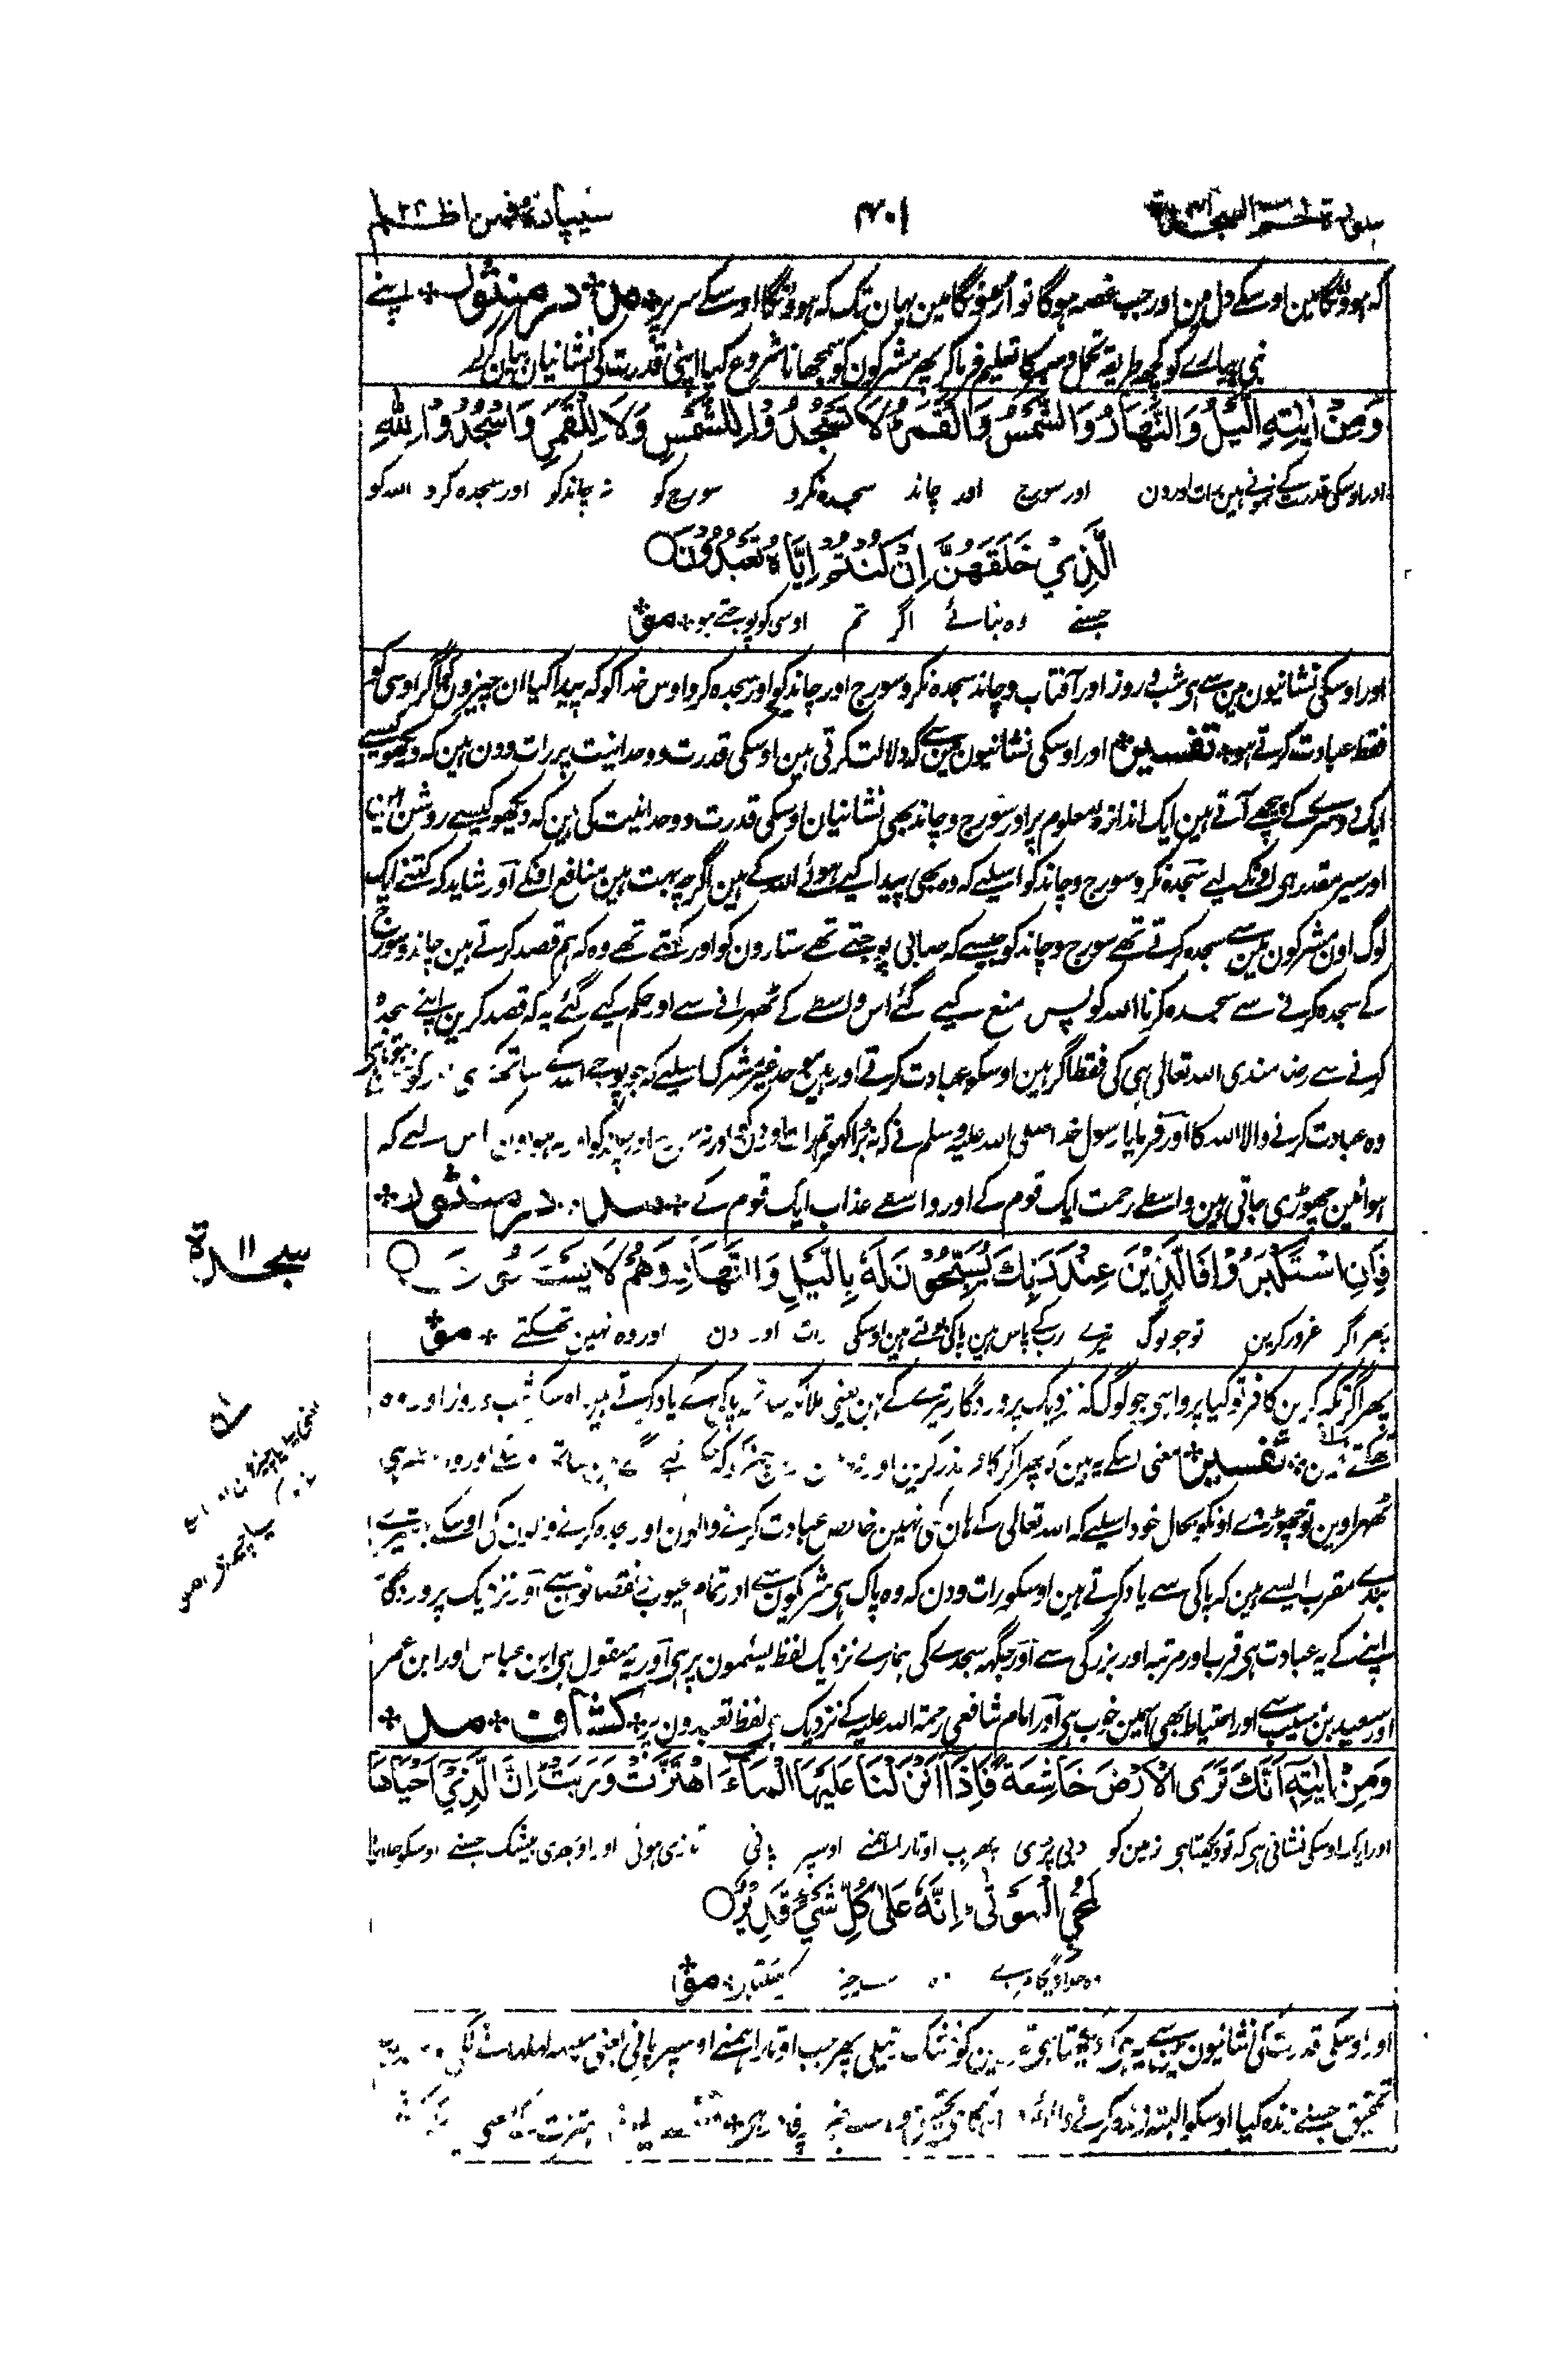 سورة حم السجدة ۴۱
۴۰۱
سیپارہ فمن اظلم ۲۴
کہ ہوونگا مین اوسکے دل مین اور جب غصہ ہوگا تو اڑھونگا مین یہان تک کہ ہوونگا اوسکے سر پر ٭ مل ٭ در منثور ٭ اپنے
نبی پیارے کو کچھ طریقہ تحمل و صبر کا تعلیم فرما کر پھر مشرکون کو سمجھانا شروع کیا اپنی قدرت کی نشانیان بیان کرکے
وَمِنْ اٰيٰتِهِ الَّيْلُ وَالنَّهَارُ وَالشَّمْسُ وَالْقَمَرُ لَا تَسْجُدُوْا لِلشَّمْسِ وَلَا لِلْقَمَرِ وَاسْجُدُوْا لِلّٰهِ
اور اوسکی قدرت کے نمونے ہین رات اور دن اور سورج اور چاند سجدہ نکرو سورج کو نہ چاند کو اور سجدہ کرو اللہ کو
الَّذِيْ خَلَقَهُنَّ اِنْ كُنْتُمْ اِيَّاهُ تَعْبُدُوْنَ
جسنے وہ بنائے اگر تم اوسی کو پوجتے ہو ٭ مق
اور اوسکی نشانیون مین سے ہی شب و روز اور آفتاب و چاند سجدہ نکرو سورج اور چاند کو اور سجدہ کرو اوس خدا کو کہ پیدا کیا ان چیزون کو اگر اوسی کو
فقط عبادت کرتے ہو ٭ تفسیر ٭ اور اوسکی نشانیون مین سے کہ دلالت کرتی ہین اوسکی قدرت و وحدانیت پر رات و دن ہین کہ دیکھو کیسے
ایک دوسرے کے پیچھے آتے ہین ایک اندازہ معلوم پر اور سورج و چاند بھی نشانیان اوسکی قدرت و وحدانیت کی ہین کہ دیکھو کیسے روشن ہین
اور سیر مقدر ہی اونکے لیے سجدہ نکرو سورج و چاند کو اسلیے کہ وہ بھی پیدا کیے ہوئے اللہ کے ہین اگرچہ بہت ہین منافع اونکے اور شاید کہ کتنے ایک
لوگ اون مشرکون مین سے سجدہ کرتے تھے سورج و چاند کو جیسے کہ صابی پوجتے تھے ستارون کو اور کہتے تھے وہ کہ ہم قصد کرتے ہین چاند و سورج
کے سجدہ کرنے سے سجدہ کرنا اللہ کو پس منع کیے گئے اس واسطے کے ٹھہرانے سے اور حکم کیے گئے یہ کہ قصد کرین اپنے سجدہ
کرنے سے رضامندی اللہ تعالی ہی کی فقط اگر ہین اوسکو عبادت کرتے اور ہین موحد غیر مشرک اسلیے کہ جو پوجے اللہ کے ساتھ کو
وہ عبادت کرنے والا اللہ کا اور فرمایا رسول خدا صلی اللہ علیہ وسلم نے کہ نہ برا کہو تم رات و دن کو اور نہ سورج اور چاند کو اور نہ ہواون اس لیے کہ
ہوائین چھوڑی جاتی ہین واسطے رحمت ایک قوم کے اور واسطے عذاب ایک قوم کے ٭ مل ٭ در منثور ٭
فَاِنِ اسْتَكْبَرُوْا فَالَّذِيْنَ عِنْدَ رَبِّكَ يُسَبِّحُوْنَ لَهٗ بِالَّيْلِ وَالنَّهَارِ وَهُمْ لَا يَسْئَمُوْنَ
سجدة ۱۱
پھر اگر غرور کرین تو جو لوگ تیرے رب کے پاس ہین پاکی بولتے ہین اوسکی رات اور دن اور وہ نہین تھکتے ٭ مق
پھر اگر تکبر کرین کافر تو کیا پروا ہی جو لوگ کہ نزدیک پروردگار تیرے کے ہین یعنی ملائکہ ساتھ پاکی کے یاد کرتے ہین اوسکو شب و روز اور وہ
تھکتے نہین ٭ تفسیر ٭ معنی اسکے یہ ہین کہ پھر اگر تکبر کرین اور
ٹھہراوین تو چھوڑ دے اونکو بحال خود اسلیے کہ اللہ تعالی کے ہان کمی نہین خالص عبادت کرنے والون اور سجدہ کرنے والون کی اوسکے بہتیرے
بندے مقرب ایسے ہین کہ پاکی سے یاد کرتے ہین اوسکو رات و دن کہ وہ پاک ہی شریکون سے اور تمام عیوب نقصانو سے اور نزدیک پروردگار
اپنے کے یہ عبادت ہی قرب اور مرتبہ اور بزرگی سے اور جگہہ سجدے کی ہمارے نزدیک لفظ یسئمون پر ہی اور یہ منقول ہی ابن عباس اور ابن عمر
اور سعید بن مسیب سے اور احتیاط بھی اسمین خوب ہی اور امام شافعی رحمۃ اللہ علیہ کے نزدیک ہی لفظ تعبدون پر ٭ کشاف ٭ مل ٭
وَمِنْ اٰيٰتِهٖٓ اَنَّكَ تَرَى الْاَرْضَ خَاشِعَةً فَاِذَآ اَنْزَلْنَا عَلَيْهَا الْمَآءَ اهْتَزَّتْ وَرَبَتْ اِنَّ الَّذِيْٓ اَحْيَاهَا
اور ایک اوسکی نشانی ہی کہ تو دیکھتا ہی زمین کو دبی پڑی پھر جب اوتارا ہمنے اوسپر پانی تازی ہوئی اور اوبھری بیشک جسنے اوسکو جلایا
لَمُحْيِ الْمَوْتٰى اِنَّهٗ عَلٰى كُلِّ شَيْءٍ قَدِيْرٌ
وہ جلاویگا مردے وہ سب چیز کرسکتا ہی ٭ مق
اور اوسکی قدرت کی نشانیون مین سے یہ ہی کہ دیکھتا ہی تو زمین کو خشک پھر جب اوتارا ہمنے اوسپر پانی یعنی مینہہ لہلہانے لگی
تحقیق جسنے زندہ کیا اوسکو البتہ زندہ کرنے والا